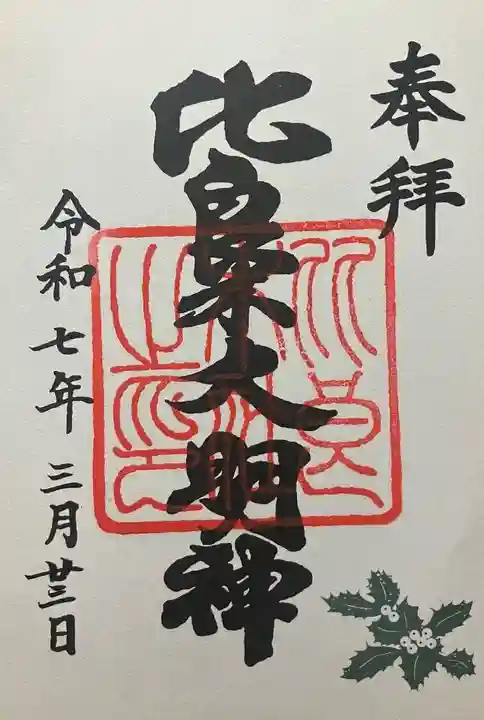 奉拝
比良木大明神
令和七年三月廿三日